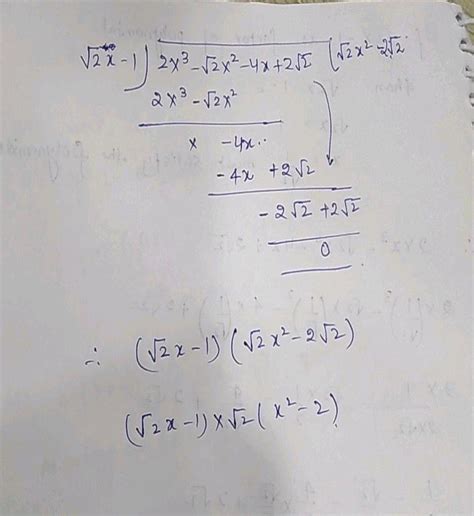 √2x - 1) 2x³ - √2x² - 4x + 2√2 (√2x² - 2√2
2x³ - √2x²
x - 4x..
- 4x + 2√2
- 2√2 + 2√2
0
∴ (√2x - 1) (√2x² - 2√2)
(√2x - 1) × √2 (x² - 2)